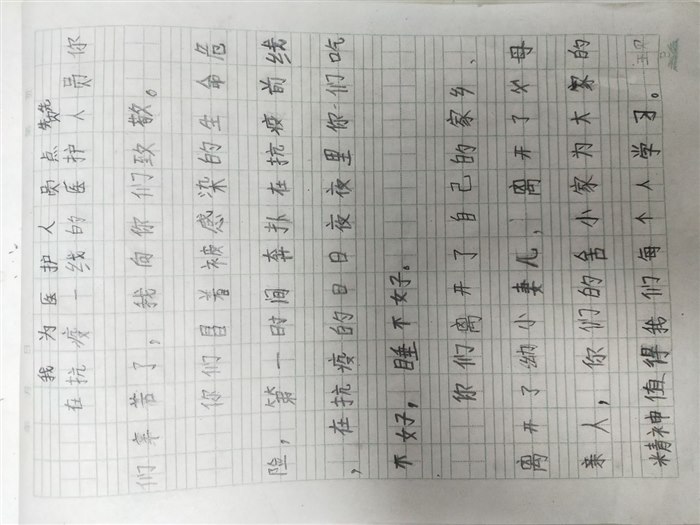 我为医护人员点赞
在抗疫一线的医护人员你
们辛苦了，我向你们致敬。
你们冒着被感染的生命危
险，第一时间奔扑在抗疫前线
，在抗疫的日日夜夜里你们吃
不好，睡不好。
你们离开了自己的家乡、
离开了幼小妻儿，离开了父母
亲人，你们的舍小家为大家的
精神值得我们每个人学习。